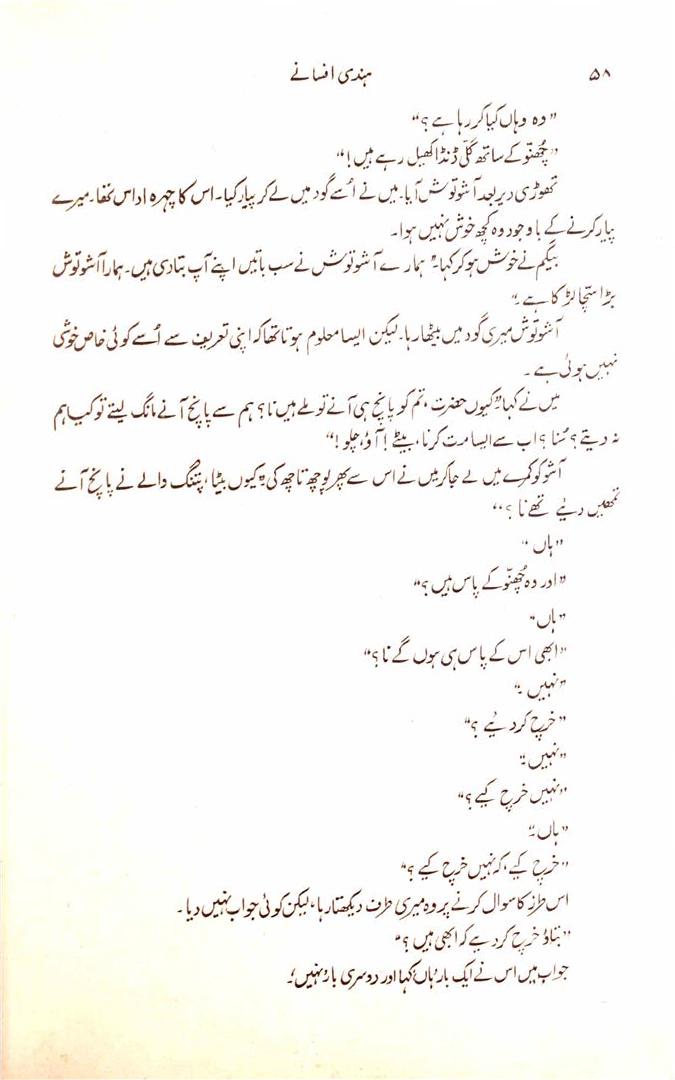 ۵۸ ہندی افسانے
"وہ وہاں کیا کر رہا ہے؟"
"چھُنّو کے ساتھ گلی ڈنڈا کھیل رہے ہیں!"
تھوڑی دیر بعد آشوتوش آیا۔ میں نے اُسے گود میں لے کر پیار کیا۔ اس کا چہرہ اداس تھا۔ میرے
پیار کرنے کے باوجود وہ کچھ خوش نہیں ہوا۔
بیگم نے خوش ہو کر کہا۔ "ہمارے آشوتوش نے سب باتیں اپنے آپ بتا دی ہیں۔ ہمارا آشوتوش
بڑا سچّا لڑکا ہے۔"
آشوتوش میری گود میں بیٹھا رہا۔ لیکن ایسا معلوم ہوتا تھا کہ اپنی تعریف سے اُسے کوئی خاص خوشی
نہیں ہوئی ہے۔
میں نے کہا۔ "کیوں حضرت، تم کو پانچ ہی آنے تو ملے ہیں نا؟ ہم سے پانچ آنے مانگ لیتے تو کیا ہم
نہ دیتے؟ سُنا؟ اب سے ایسا مت کرنا، بیٹے! آؤ، چلو!"
آشو کو کمرے میں لے جا کر میں نے اس سے پھر پوچھ تاچھ کی۔ "کیوں بیٹا، پتنگ والے نے پانچ آنے
تمھیں دیئے تھے نا؟"
"ہاں"
"اور وہ چھُنّو کے پاس ہیں؟"
"ہاں۔"
"ابھی اس کے پاس ہی ہوں گے نا؟"
"نہیں۔"
"خرچ کر دیئے؟"
"نہیں۔"
"نہیں خرچ کیے؟"
"ہاں۔"
"خرچ کیے، کہ نہیں خرچ کیے؟"
اس طرز کا سوال کرنے پر وہ میری طرف دیکھتا رہا، لیکن کوئی جواب نہیں دیا۔
"بتاؤ خرچ کر دیے کہ ابھی ہیں؟"
جواب میں اس نے ایک بار 'ہاں' کہا اور دوسری بار 'نہیں'۔